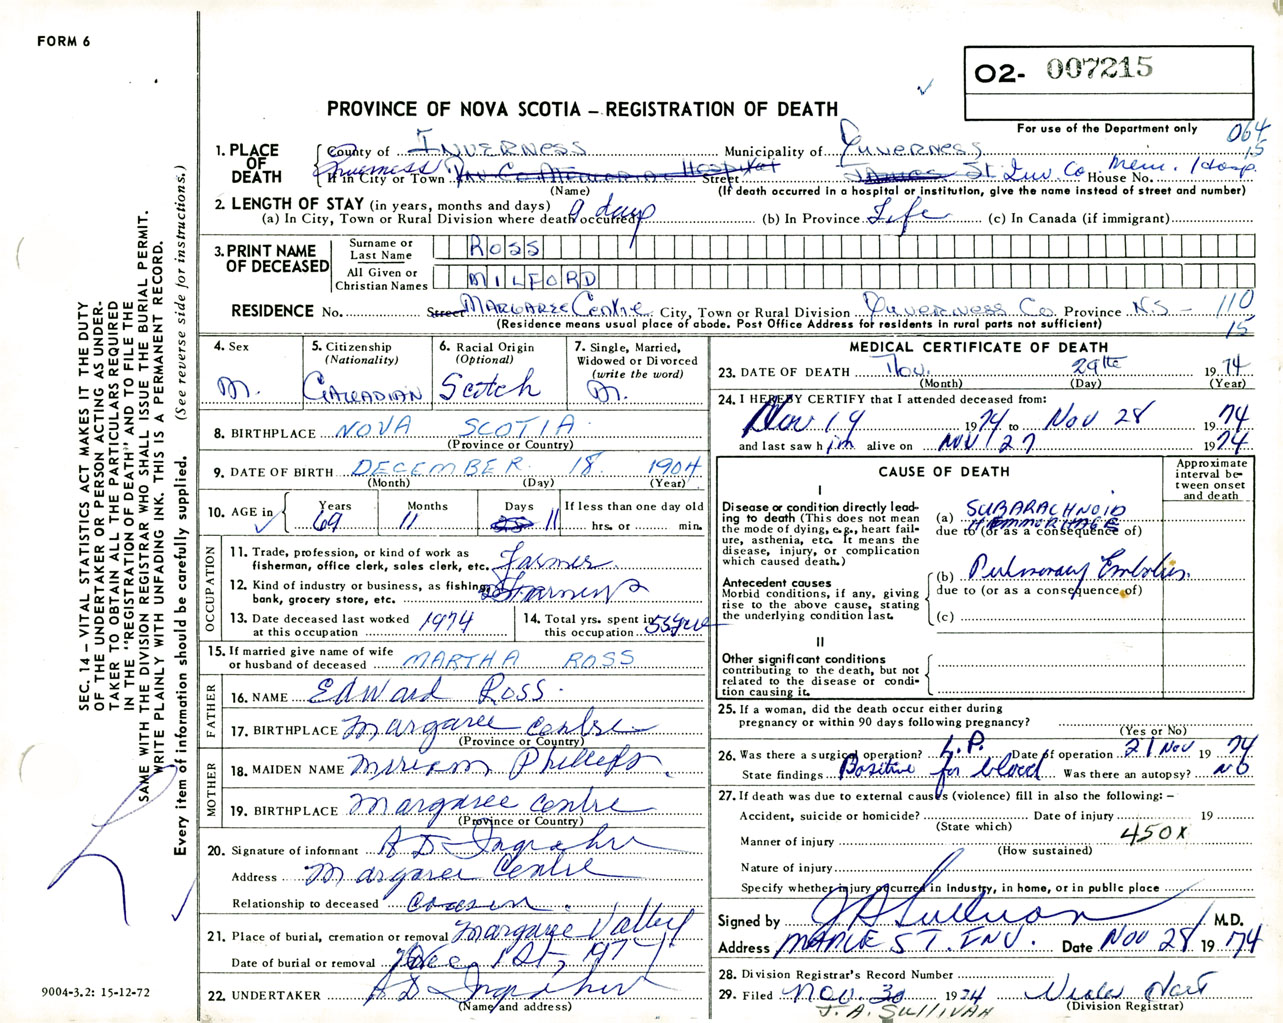 FORM 6
O2- 007215
PROVINCE OF NOVA SCOTIA – REGISTRATION OF DEATH
For use of the Department only
064
15
1. PLACE OF DEATH
County of INVERNESS Municipality of INVERNESS
Inverness If in City or Town Inv Co Memorial Hospital Street St Inv Co Mem. Hosp. House No.
(Name) (If death occurred in a hospital or institution, give the name instead of street and number)
2. LENGTH OF STAY (in years, months and days)
(a) In City, Town or Rural Division where death occurred 9 days (b) In Province Life (c) In Canada (if immigrant)
3. PRINT NAME OF DECEASED
Surname or Last Name ROSS
All Given or Christian Names MILFORD
RESIDENCE No. Street Margaree Centre City, Town or Rural Division Inverness Co Province N.S – 110
15
(Residence means usual place of abode. Post Office Address for residents in rural parts not sufficient)
4. Sex M.
5. Citizenship (Nationality) CANADIAN
6. Racial Origin (Optional) Scotch
7. Single, Married, Widowed or Divorced (write the word) M.
8. BIRTHPLACE NOVA SCOTIA
(Province or Country)
9. DATE OF BIRTH DECEMBER 18 1904
(Month) (Day) (Year)
10. AGE in Years 69 Months 11 Days 11 If less than one day old hrs. or min.
OCCUPATION
11. Trade, profession, or kind of work as fisherman, office clerk, sales clerk, etc. Farmer
12. Kind of industry or business, as fishing, bank, grocery store, etc. Farming
13. Date deceased last worked at this occupation 1974
14. Total yrs. spent in this occupation 55 yrs
15. If married give name of wife or husband of deceased MARTHA ROSS
FATHER
16. NAME Edward Ross.
17. BIRTHPLACE Margaree Centre
(Province or Country)
MOTHER
18. MAIDEN NAME Miriam Phillips.
19. BIRTHPLACE Margaree Centre
(Province or Country)
20. Signature of informant A D Ingraham
Address Margaree Centre
Relationship to deceased Cousin.
21. Place of burial, cremation or removal Margaree Valley
Date of burial or removal Dec 1st, 1974
22. UNDERTAKER A D Ingraham
(Name and address)
MEDICAL CERTIFICATE OF DEATH
23. DATE OF DEATH Nov. 29th 1974
(Month) (Day) (Year)
24. I HEREBY CERTIFY that I attended deceased from:
Nov 19 1974 to Nov 28 1974
and last saw him alive on Nov 27 1974
CAUSE OF DEATH
Approximate interval between onset and death
I
Disease or condition directly leading to death (This does not mean the mode of dying, e.g., heart failure, asthenia, etc. It means the disease, injury, or complication which caused death.)
(a) SUBARACHNOID HEMMORHAGE
due to (or as a consequence of)
Antecedent causes
Morbid conditions, if any, giving rise to the above cause, stating the underlying condition last.
(b) Pulmonary Embolus.
due to (or as a consequence of)
(c)
II
Other significant conditions
contributing to the death, but not related to the disease or condition causing it.
25. If a woman, did the death occur either during pregnancy or within 90 days following pregnancy?
(Yes or No)
26. Was there a surgical operation? L.P. Date of operation 21 Nov 1974
State findings Positive for blood Was there an autopsy? no
27. If death was due to external causes (violence) fill in also the following: –
Accident, suicide or homicide? Date of injury 19
(State which)
Manner of injury 450X
(How sustained)
Nature of injury
Specify whether injury occurred in industry, in home, or in public place
Signed by J A Sullivan M.D.
Address MAPLE ST. INV. Date Nov 28 1974
28. Division Registrar's Record Number
29. Filed Nov. 30 1974
(Division Registrar)
J. A. SULLIVAN
SEC. 14 – VITAL STATISTICS ACT MAKES IT THE DUTY
OF THE UNDERTAKER OR PERSON ACTING AS UNDER-
TAKER TO OBTAIN ALL THE PARTICULARS REQUIRED
IN THE "REGISTRATION OF DEATH" AND TO FILE THE
SAME WITH THE DIVISION REGISTRAR WHO SHALL ISSUE THE BURIAL PERMIT.
WRITE PLAINLY WITH UNFADING INK. THIS IS A PERMANENT RECORD.
Every item of information should be carefully supplied. (See reverse side for instructions.)
9004-3.2: 15-12-72